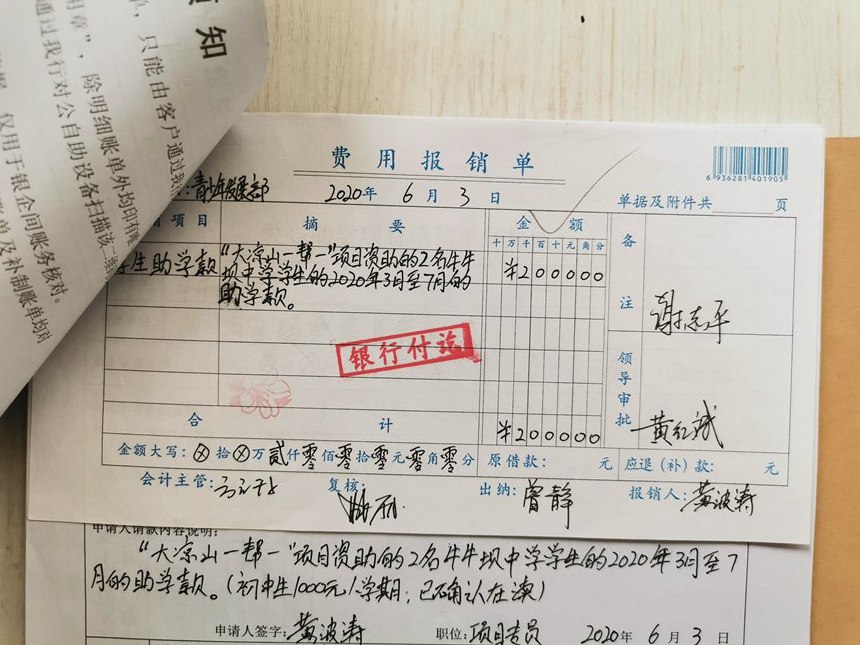 须知
用章
章”，除明细账单外均印有
章，只能由客户通过
通过我行对公自助设备扫描该二维
仅用于银企间账务核对。
账单及补制账单均对
费用报销单
6 936281 401905
：青少年发展部
2020年 6月 3日
单据及附件共 页
项目 摘要 金额 备注
十万千百十元角分
学生助学款
“大凉山一帮一”项目资助的2名牛牛
坝中学学生的2020年3月至7月的
助学款。
¥200000
谢志平
银行付讫
领导审批
黄红斌
合计 ¥200000
金额大写：ⓧ拾ⓧ万贰仟零佰零拾零元零角零分 原借款： 元 应退（补）款： 元
会计主管： 复核： 出纳：曾静 报销人：黄波涛
申请人请款内容说明：
“大凉山一帮一”项目资助的2名牛牛坝中学学生的2020年3月至7
月的助学款。（初中生1000元/学期；已确认在读）
申请人签字：黄波涛 职位：项目专员 2020年 6月 3日